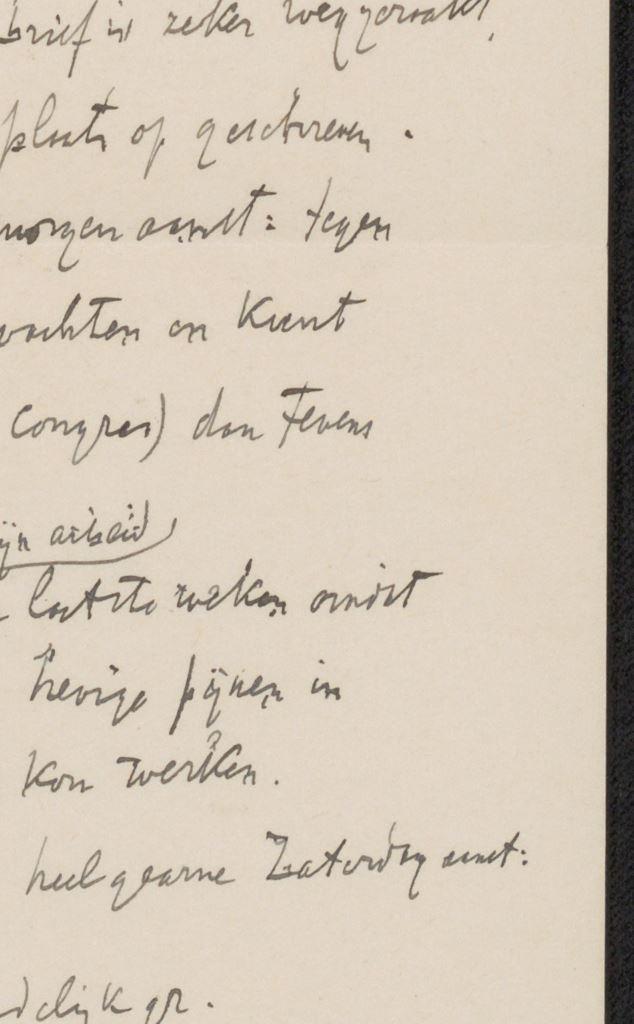 brief is zeker weggeraakt,
plaats op geschreven.
morgen aanst: tegen
wachten en Kunt
Congres) dan tevens
ijn arbeid
laatste weken omdat
hevige pijnen in
Kon werken.
heel gearne Zaterdag aanst:
delijk gr.